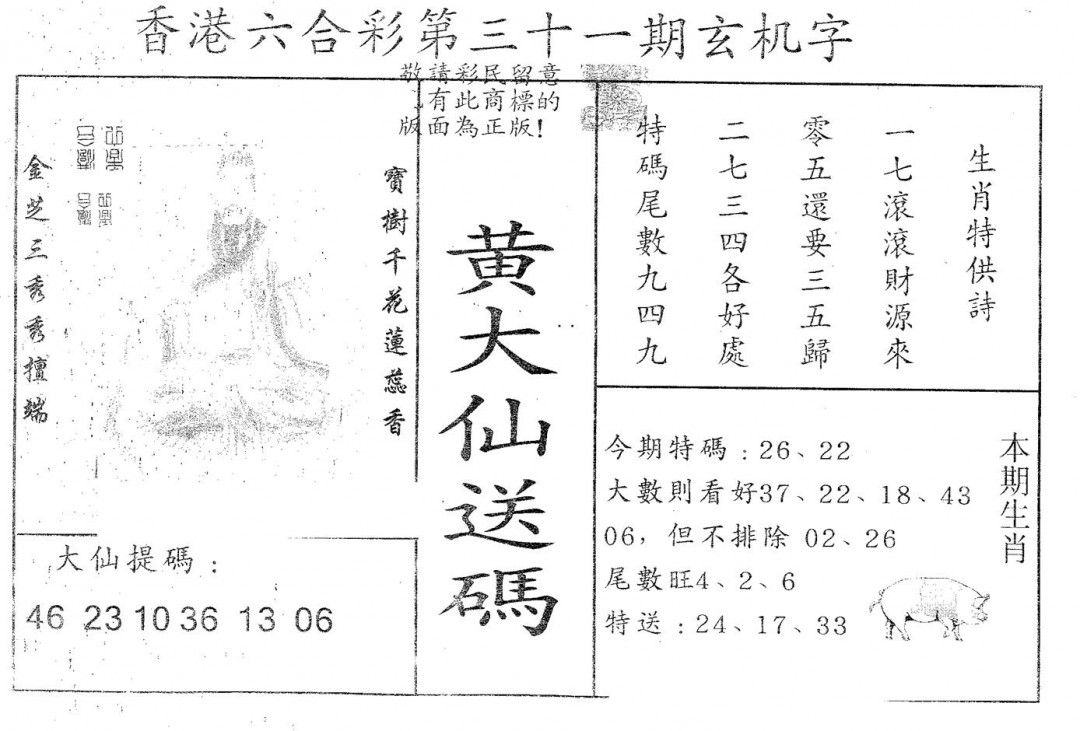 香港六合彩第三十一期玄机字
敬請彩民留意
有此商標的
版面為正版!
寶樹千花蓮蕊香
金芝三秀秀擅端
黄大仙送碼
生肖特供詩
一七滾滾財源來
零五還要三五歸
二七三四各好處
特碼尾數九四九
本期生肖
今期特碼:26、22
大數則看好37、22、18、43
06,但不排除 02、26
尾數旺4、2、6
特送:24、17、33
大仙提碼:
46 23 10 36 13 06